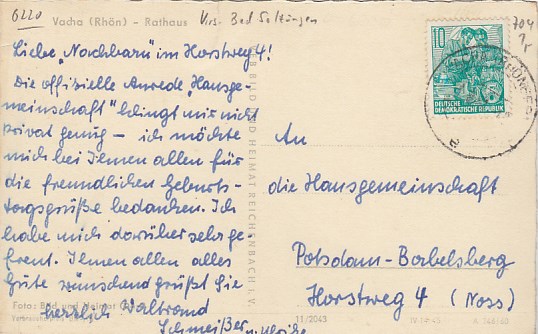 6220
Vacha (Rhön) - Rathaus
Krs. Bad Salzungen
704
Liebe "Nachbarn" im Horstweg 4!
Die offizielle Anrede "Hausge-
meinschaft" klingt mir nicht
privat genug – ich möchte
mich bei Ihnen allen für
die freundlichen Geburts-
tagsgrüße bedanken. Ich
habe mich darüber sehr ge-
freut. Ihnen allen alles
Gute wünschend grüßt Sie
herzlich Waltraud
Schmeißer
Foto: Bild und Heimat
BILD UND HEIMAT REICHENBACH I. V.
11/2043
10
DEUTSCHE
DEMOKRATISCHE REPUBLIK
An
die Hausgemeinschaft
Potsdam-Babelsberg
Horstweg 4 (Noss)